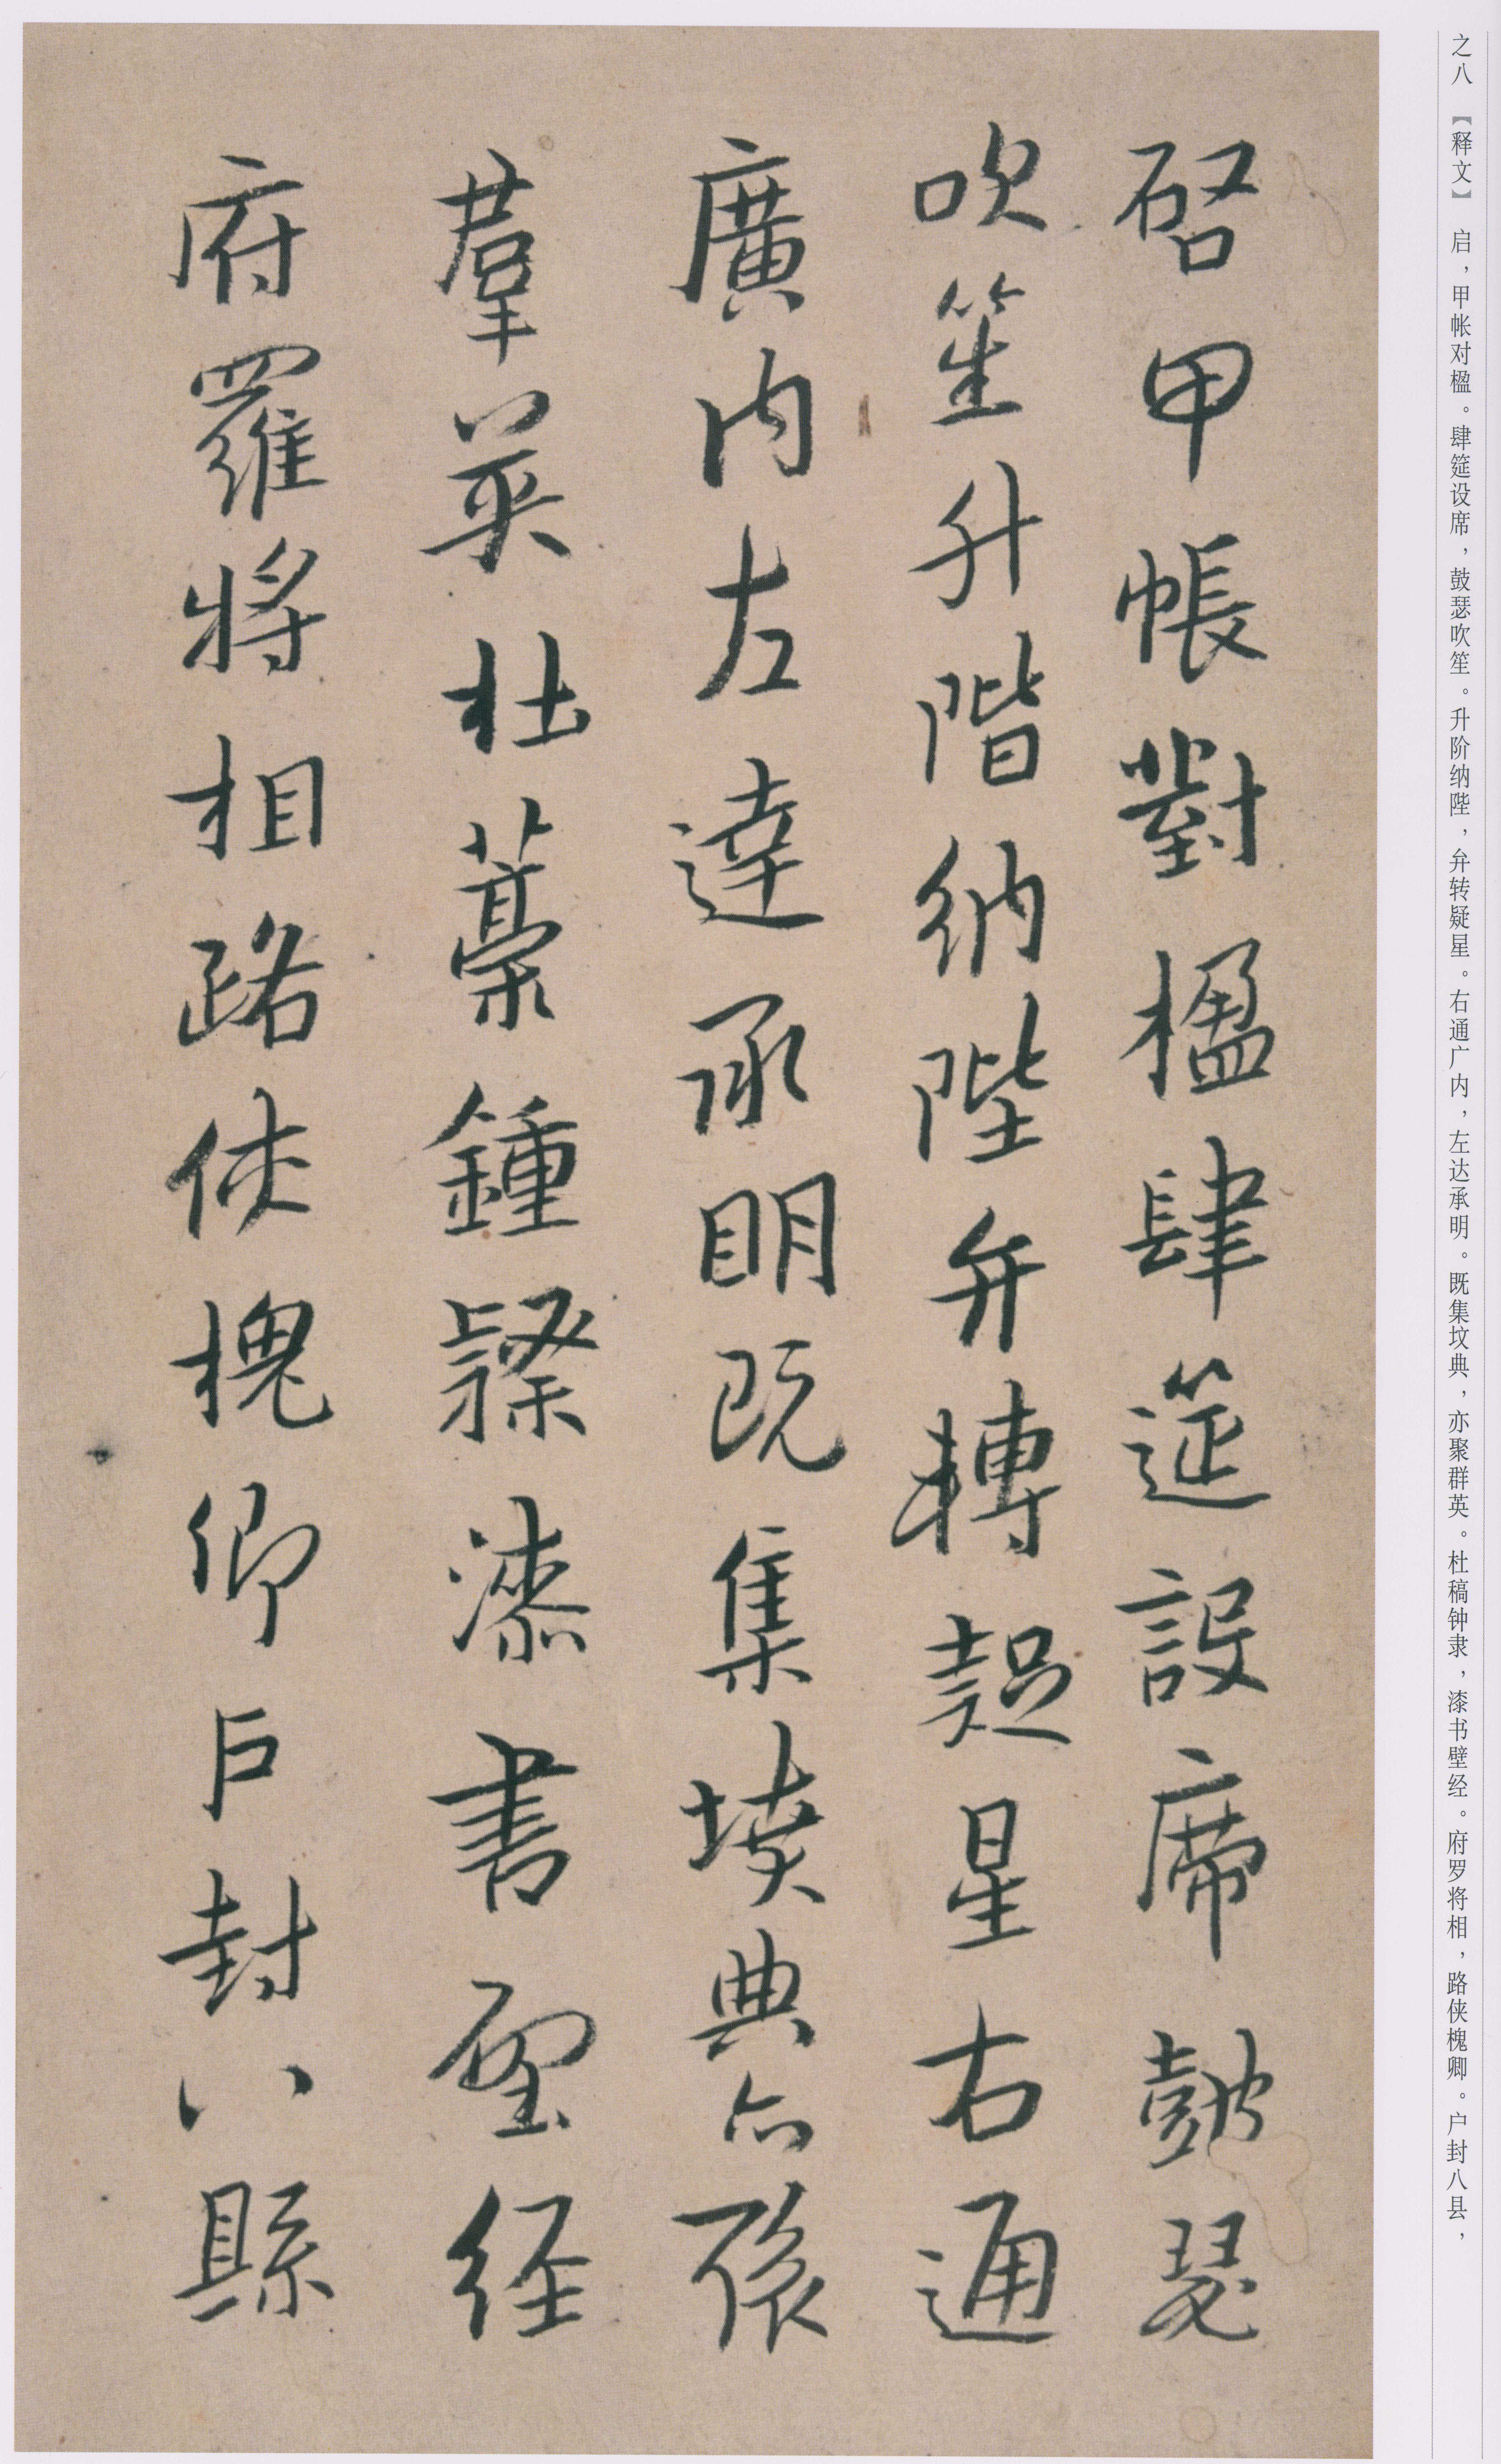 之八 【释文】 启，甲帐对楹。肆筵设席，鼓瑟吹笙。升阶纳陛，弁转疑星。右通广内，左达承明。既集坟典，亦聚群英。杜稿钟隶，漆书壁经。府罗将相，路侠槐卿。户封八县，
啓甲帳對楹肆筵設席鼓瑟
吹笙升階納陛弁轉疑星右通
廣內左達承明既集墳典亦聚
羣英杜藁鍾隸漆書壁経
府羅將相路俠槐卿戶封八縣